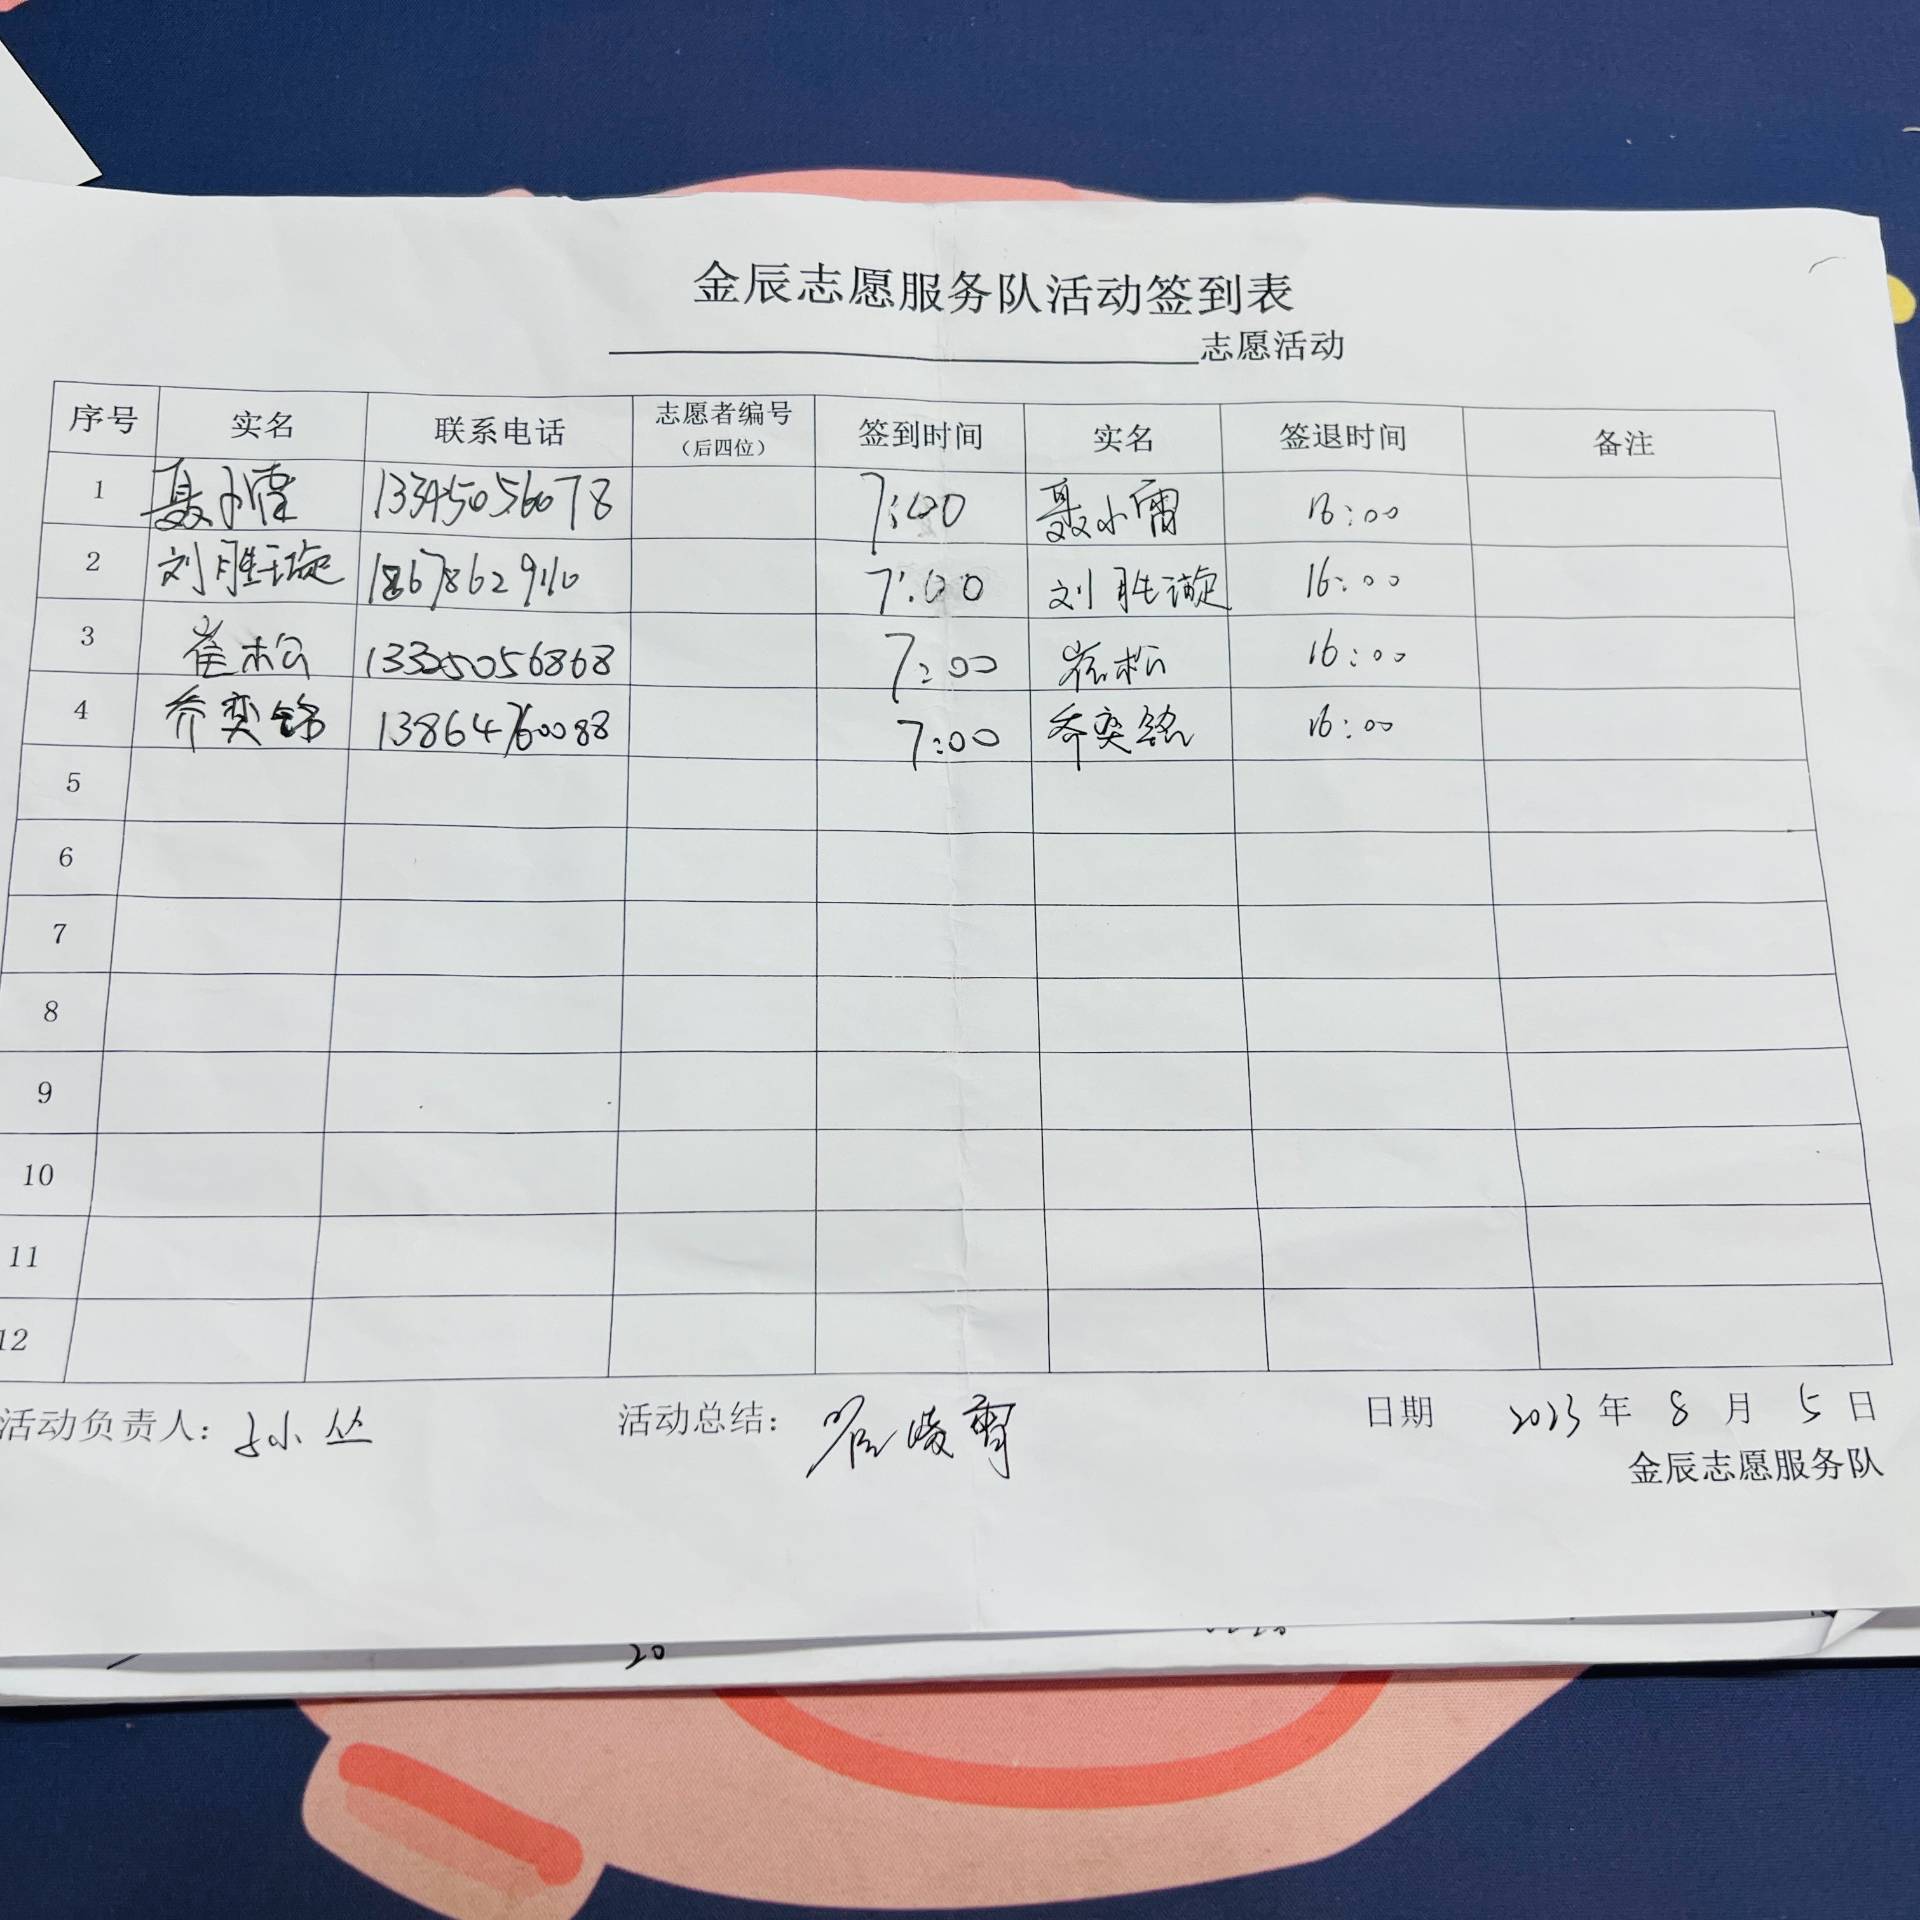 金辰志愿服务队活动签到表
志愿活动
序号 实名 联系电话 志愿者编号（后四位） 签到时间 实名 签退时间 备注
1 聂小霏 13345056078 7:00 聂小雷 16:00
2 刘胜璇 18678629110 7:00 刘胜璇 16:00
3 崔松 13325056868 7:00 崔松 16:00
4 乔奕铭 13864760088 7:00 乔奕铭 16:00
5
6
7
8
9
10
11
12
活动负责人： 孙丛 活动总结： 日期 2023年8月5日
金辰志愿服务队
20